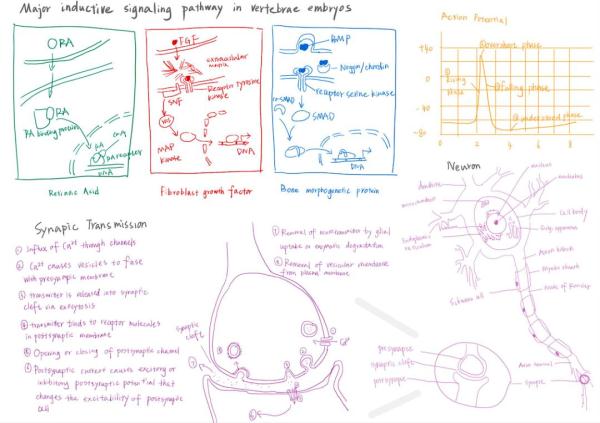 Major inductive signaling pathway in vertebrae embryos
RA
RA
RA binding protein
RA
RA receptor
DNA
Retinoic Acid
FGF
extracellular
Receptor tyrosine kinase
SNT
MAP kinase
DNA
Fibroblast growth factor
BMP
Noggin/chordin
receptor serine kinase
co-SMAD
SMAD
DNA
Bone morphogenetic protein
Action Potential
+40
0
-40
-80
0
2
4
6
8
① Rising phase
② overshoot phase
③ falling phase
④ undershoot phase
Neuron
nucleus
nucleolus
dendrite
mitochondrion
Cell body
Golgi apparatus
Endoplasmic reticulum
Axon hillock
Myelin sheath
Node of Ranvier
Schwann cell
Axon terminal
synapse
Synapic Transmission
① Influx of Ca²⁺ through channels
② Ca²⁺ causes vesicles to fuse
with presynaptic membrane
③ transmitter is released into synaptic
cleft via exocytosis
④ transmitter binds to receptor molecules
in postsynaptic membrane
⑤ Opening or closing of postsynaptic channel
⑥ Postsynaptic current causes excitory or
inhibitory postsynaptic potential that
changes the excitability of postsynaptic
cell
⑦ Removal of neurotransmitter by glial
uptake or enzymatic degradation
⑧ Removal of vesicular membrane
from plasma membrane
synaptic cleft
Ca²⁺
presynapse
synaptic cleft
postsynapse